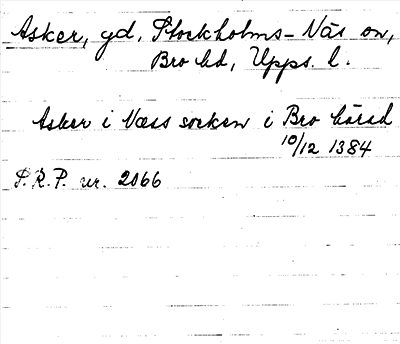 Asker, gd, Stockholms-Näs sn,
Bro hd, Upps. l.
Asker i Næss socken i Bro härad
10/12 1384
S.R.P. nr. 2066